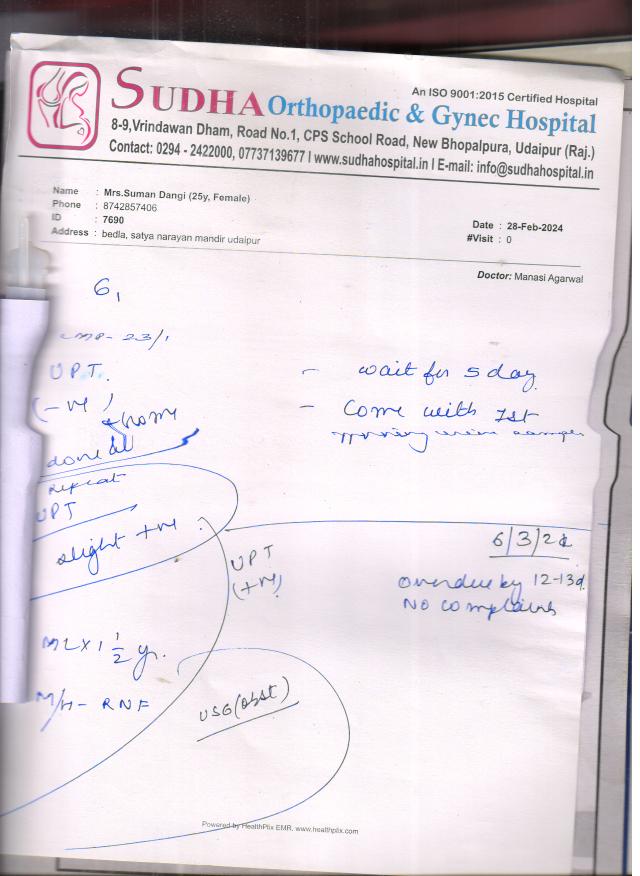 An ISO 9001:2015 Certified Hospital
SUDHA Orthopaedic & Gynec Hospital
8-9,Vrindawan Dham, Road No.1, CPS School Road, New Bhopalpura, Udaipur (Raj.)
Contact: 0294 - 2422000, 07737139677 I www.sudhahospital.in I E-mail: info@sudhahospital.in
Name : Mrs.Suman Dangi (25y, Female)
Phone : 8742857406
ID : 7690
Address : bedla, satya narayan mandir udaipur
Date : 28-Feb-2024
#Visit : 0
Doctor: Manasi Agarwal
G1
LMP- 23/1
UPT.
(-ve)
home
done at
repeat
UPT
slight +ve
- wait for 5 day
- Come with 1st
morning urine sample
6/3/24
overdue by 12-13d.
No complains
UPT
(+ve)
ML x 1 1/2 yr.
M/H - RNF
USG(obst)
Powered by HealthPlix EMR. www.healthplix.com